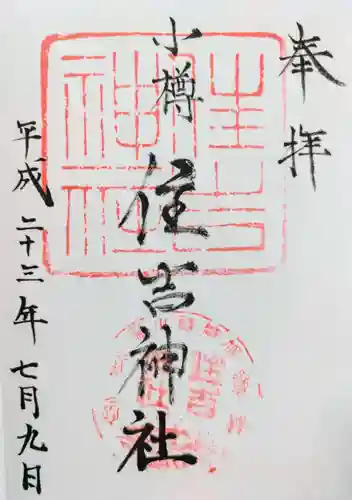 奉拝
小樽
住吉神社
平成二十三年七月九日
住吉神社
住吉